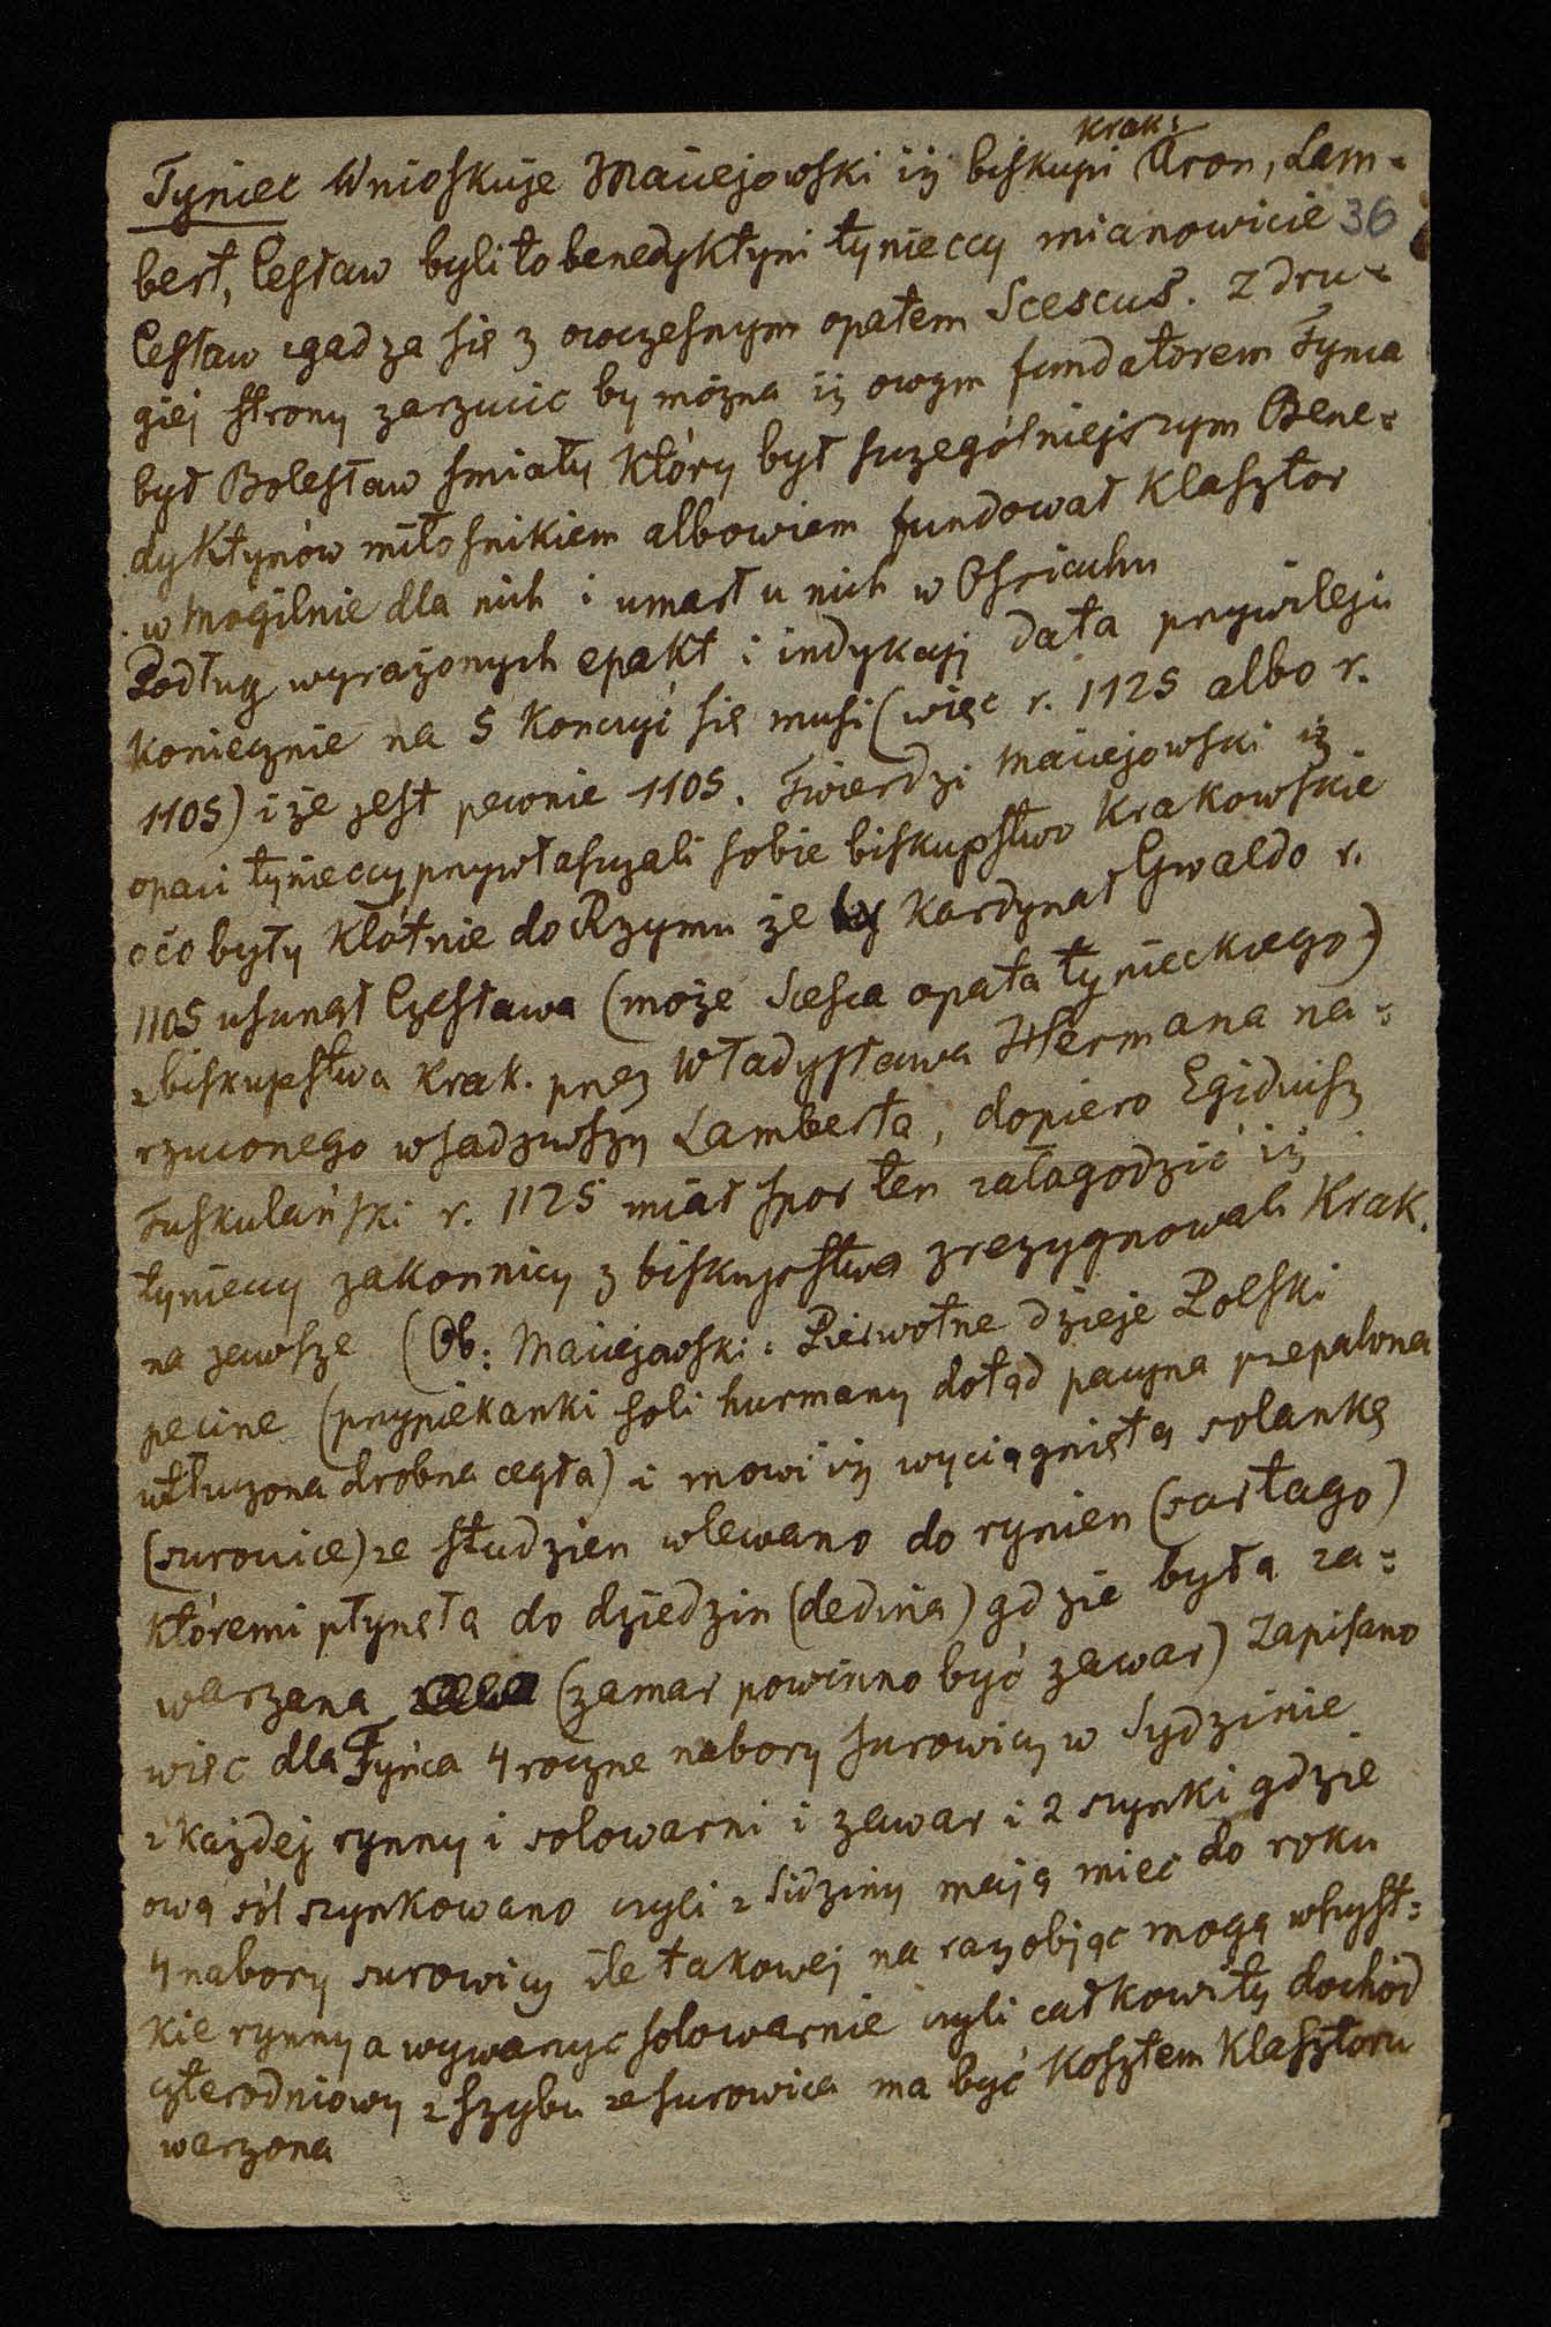 krak:
Tyniec Wnioskuje Maciejowski iż biskupi Aron, Lam-
bert, Cesław byli to benedyktyni tynieccy mianowicie 36
Cesław zgadza się z owczesnym opatem Scescus. Z dru-
giej strony zarzucic by można iż owym fundatorem Tynca
był Bolesław smiały który był szczególniejszym Bene-
dyktynów miłosnikiem albowiem fundował klasztor
w Mogilnie dla nich i umarł u nich w Ossiachu
Podług wyrażonych epakt i indykcyi data przywileju
koniecznie na 5 konczyć się musi (więc r. 1125 albo r.
1105) i że jest pewnie 1105. Twierdzi Maciejowski iż
opaci tynieccy przywłaszczali sobie biskupstwo krakowskie
o co były kłótnie do Rzymu że kardynał Gwaldo r.
1105 usunął Czesława (może Scesca opata tynieckiego)
z biskupstwa krak. przez Władysława Hermana na-
rzuconego wsadziwszy Lamberta, dopiero Egidiusz
Tuskulański r. 1125 miał spor ten załagodzić iż
tynieccy zakonnicy z biskupstwa zrezygnowali krak.
na zawsze (Ob: Maciejowski: Pierwotne dzieje Polski
pecine (przypiekanki soli hurmany dotąd pacyna przepalona
utłuczona drobna cegła) i mowi iż wyciągniętą solankę
(surowice) ze studzien wlewano do rynien (sartago)
któremi płynęła do dziedzin (dedina) gdzie była za-
warzana (zamar powinno być zawar) Zapisano
więc dla Tyńca 4 roczne nabory surowicy w Sydzinie
z każdej rynny i solowarni i zawar i 2 szynki gdzie
ową sól szynkowano czyli z Sidziny mają miec do roku
4 nabory surowicy ile takowej na raz objąc mogą wszyst-
kie rynny a wywarzyc solowarnie czyli całkowity dochód
czterodniowy z szybu ze surowica ma być kosztem klasztoru
warzona